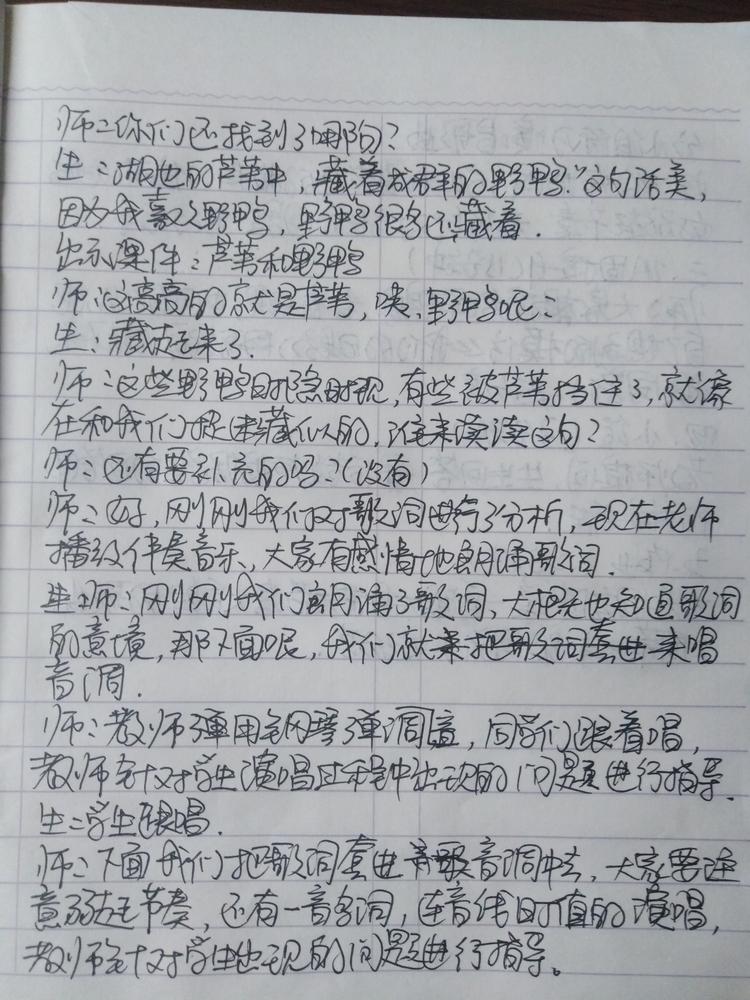 师：你们还找到了哪段？
生：湖边的芦苇中，藏着成群的野鸭.”这句话美，
因为我喜欢野鸭，野鸭很多还藏着.
出示课件：芦苇和野鸭
师：这高高的就是芦苇，咦，野鸭呢：
生：藏起来了.
师：这些野鸭时隐时现，有些被芦苇挡住了，就像
在和我们捉迷藏似的，谁来读读这句？
师：还有要补充的吗？（没有）
师：好，刚刚我们对歌词进行了分析，现在老师
播放伴奏音乐，大家有感情地朗诵歌词.
师：刚刚我们朗诵了歌词，大概也知道歌词
的意境，那下面呢，我们就来把歌词套进来唱
音调.
师：教师弹用钢琴弹调，同学们跟着唱，
教师针对学生演唱过程中出现的问题进行指导.
生：学生跟唱.
师：下面我们把歌词套进音调中去，大家要注
意弱起节奏，还有一音多词，连音线时值的演唱，
教师针对学生出现的问题进行指导。